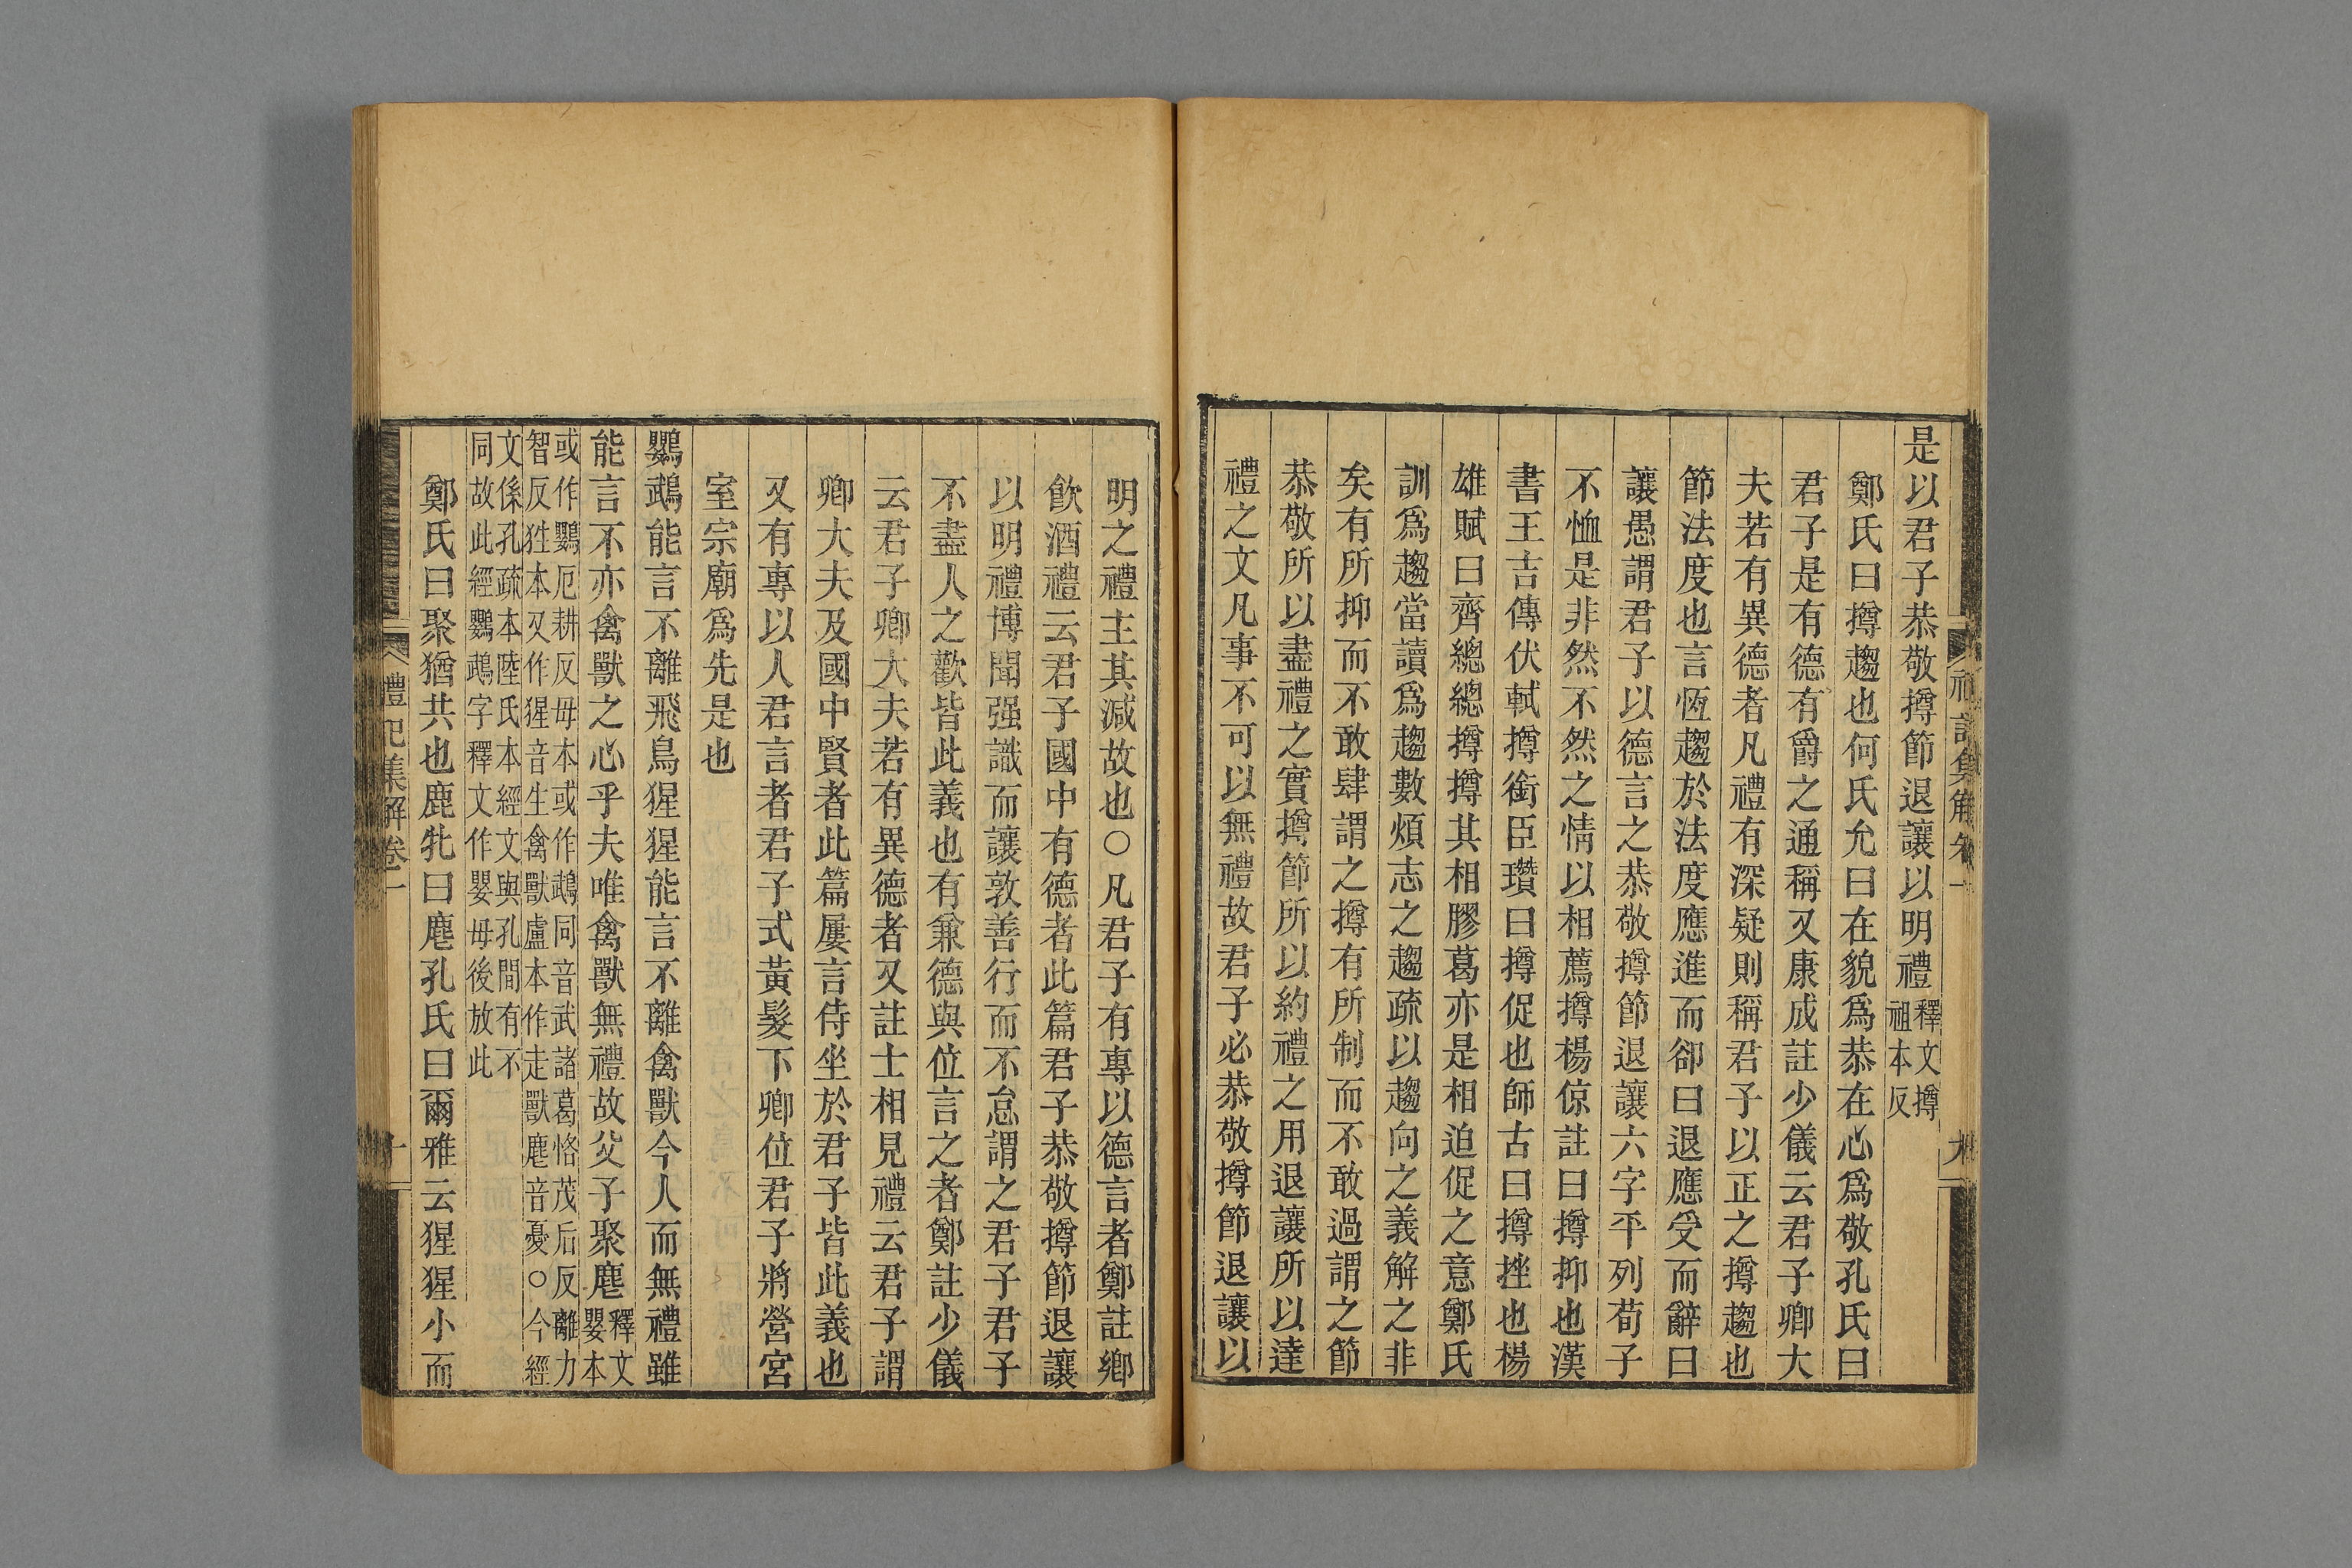 是以君子恭敬撙節退讓以明禮釋文撙祖本反
鄭氏曰撙趨也何氏允曰在貌爲恭在心爲敬孔氏曰
君子是有德有爵之通稱又康成註少儀云君子卿大
夫若有異德者凡禮有深疑則稱君子以正之撙趨也
節法度也言恆趨於法度應進而卻曰退應受而辭曰
讓愚謂君子以德言之恭敬撙節退讓六字平列荀子
不恤是非然不然之情以相薦撙楊倞註曰撙抑也漢
書王吉傳伏軾撙銜臣瓚曰撙促也師古曰撙挫也楊
雄賦曰齊總總撙撙其相膠葛亦是相迫促之意鄭氏
訓爲趨當讀爲趨數煩志之趨疏以趨向之義解之非
矣有所抑而不敢肆謂之撙有所制而不敢過謂之節
恭敬所以盡禮之實撙節所以約禮之用退讓所以達
禮之文凡事不可以無禮故君子必恭敬撙節退讓以
明之禮主其減故也○凡君子有專以德言者鄭註鄉
飲酒禮云君子國中有德者此篇君子恭敬撙節退讓
以明禮博聞强識而讓敦善行而不怠謂之君子君子
不盡人之歡皆此義也有兼德與位言之者鄭註少儀
云君子卿大夫若有異德者又註士相見禮云君子謂
卿大夫及國中賢者此篇屢言侍坐於君子皆此義也
又有專以人君言者君子式黃髮下卿位君子將營宮
室宗廟爲先是也
鸚鵡能言不離飛鳥猩猩能言不離禽獸今人而無禮雖
能言不亦禽獸之心乎夫唯禽獸無禮故父子聚麀釋文嬰本
或作鸚厄耕反母本或作鵡同音武諸葛恪茂后反離力
智反狌本又作猩音生禽獸盧本作走獸麀音憂○今經
文係孔疏本陸氏本經文與孔間有不
同故此經鸚鵡字釋文作嬰母後放此
鄭氏曰聚猶共也鹿牝曰麀孔氏曰爾雅云猩猩小而
禮記集解卷一
十